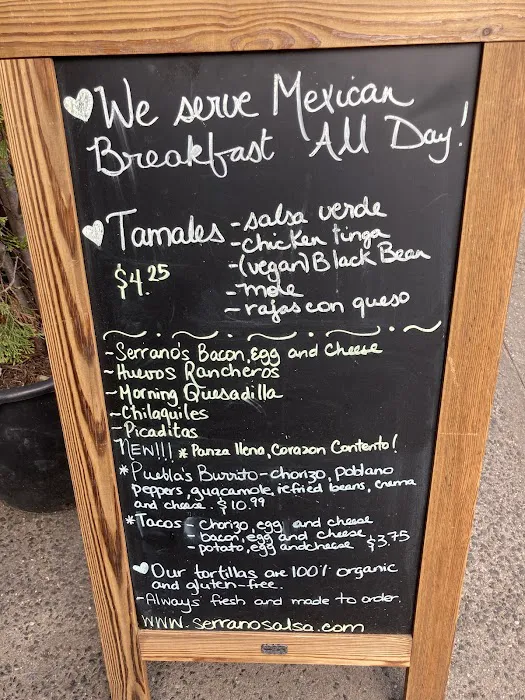 We serve Mexican
Breakfast All Day!
Tamales - salsa verde
- chicken tinga
- (vegan) Black Bean
- mole
- rajas con queso
$4.25
- Serrano's Bacon, Egg and Cheese
- Huevos Rancheros
- Morning Quesadilla
- Chilaquiles
- Picaditas
NEW!!! * Panza llena, Corazon Contento!
* Puebla's Burrito - chorizo, poblano
peppers, guacamole, refried beans, crema
and cheese. $10.99
* Tacos - chorizo, egg and cheese
- bacon, egg and cheese $3.75
- potato, egg and cheese
Our tortillas are 100% organic
and gluten-free.
- Always fresh and made to order.
www.serranosalsa.com